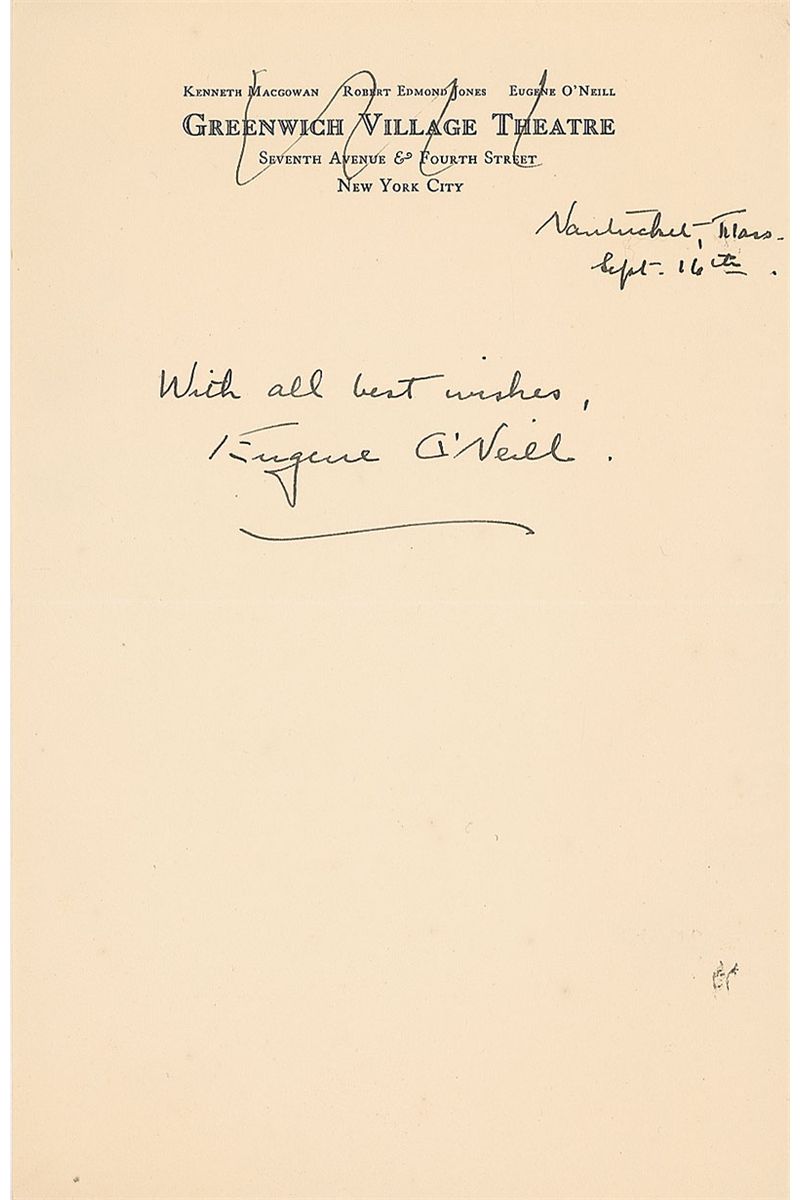 Kenneth Macgowan Robert Edmond Jones Eugene O'Neill
Greenwich Village Theatre
Seventh Avenue & Fourth Street
New York City
Nantucket, Mass.
Sept. 16th.
With all best wishes,
Eugene O'Neill.